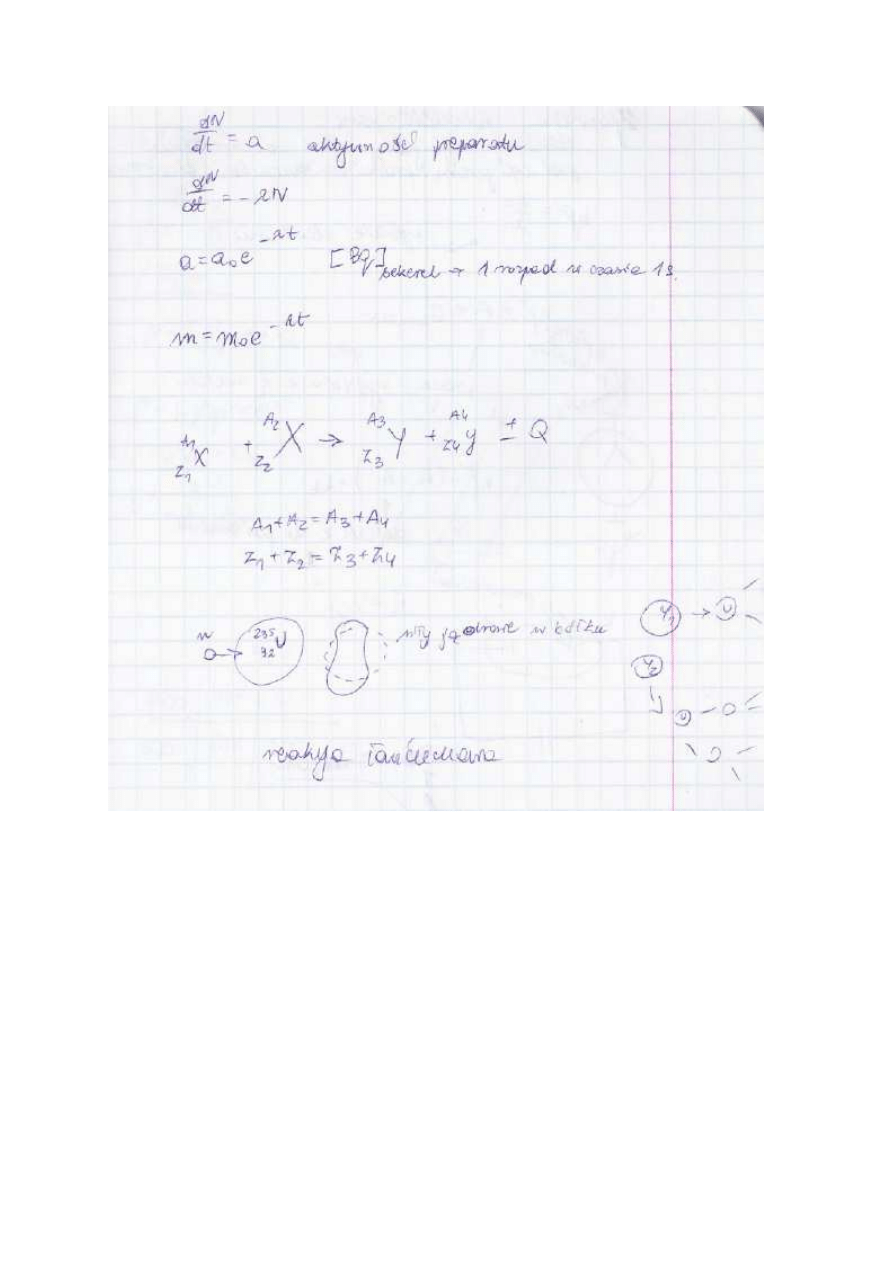 dN/dt = a aktywność preparatu
dN/dt = - λN
a = a₀e^-λt [Bq] bekerel → 1 rozpad w czasie 1s.
m = m₀e^-λt
A₁ Z₁ X + A₂ Z₂ X → A₃ Z₃ Y + A₄ Z₄ y ± Q
A₁ + A₂ = A₃ + A₄
Z₁ + Z₂ = Z₃ + Z₄
n 235 92 U siły jądrowe Y₁ → U
Y₂
U
reakcja łańcuchowa